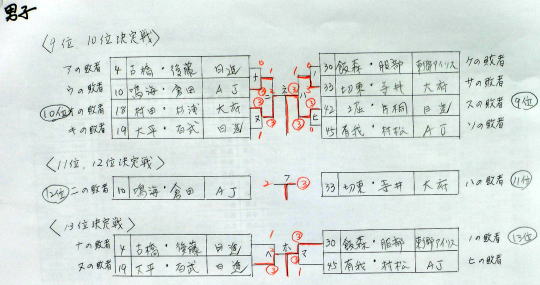 男子
〈9位、10位決定戦〉
アの敗者 4 古橋・後藤 日進
ウの敗者 10 鳴海・倉田 AJ
10位 の敗者 18 村田・ 大府
キの敗者 19 大平・ 日進
ケの敗者 30 飯森・服部
サの敗者 33 切東・寺井 大府
スの敗者 42 ・片桐 日進 9位
ソの敗者 45 有我・村松 AJ
〈11位、12位決定戦〉
12位 ニの敗者 10 鳴海・倉田 AJ
2 フ 3
33 切東・寺井 大府 ハの敗者 11位
〈13位決定戦〉
ナの敗者 4 古橋・後藤 日進
ヌの敗者 19 大平・ 日進
ヘ ホ マ
30 飯森・服部 ノの敗者 13位
45 有我・村松 AJ ヒの敗者